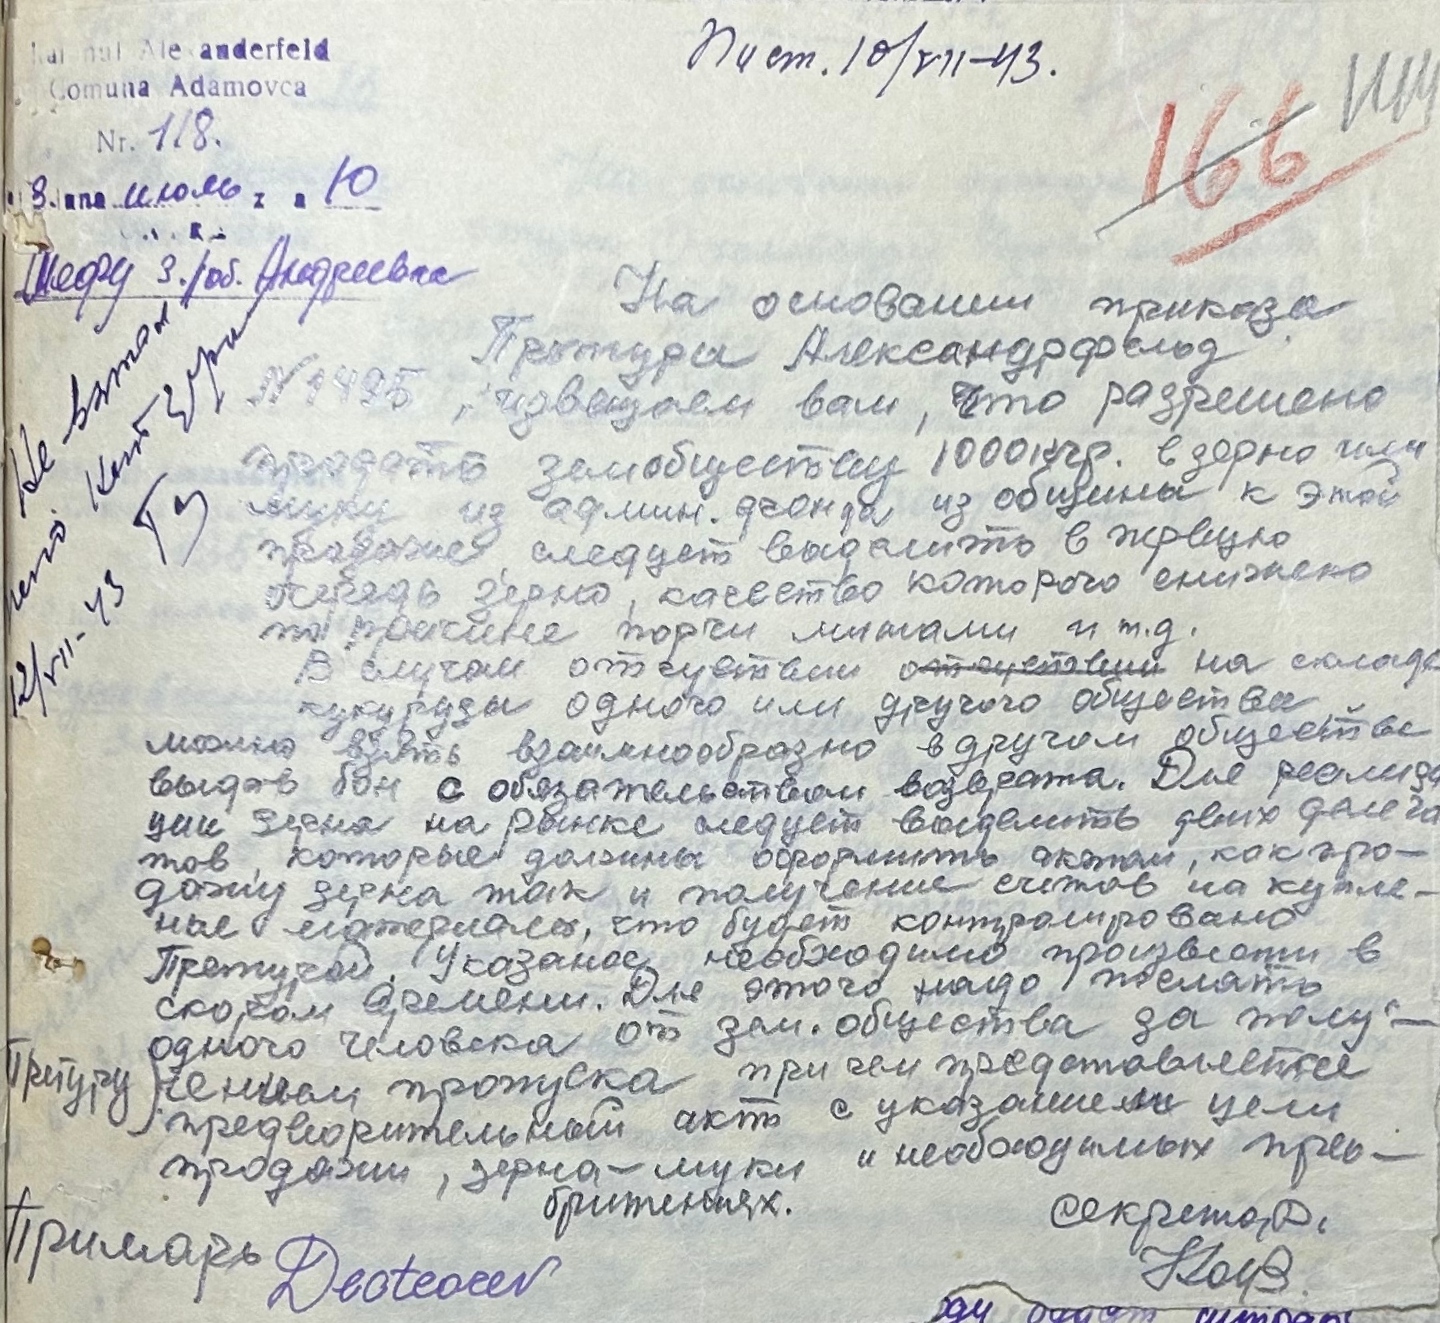 Пист. 10/VII-43.
Alexanderfeld
Comuna Adamovca
Nr. 118.
166
3. июль
10
Шефу з./об. Андреевка
12/VII-43
На основании приказа
Претуры Александрфельд
N 1495, извещаем вам, что разрешено
продать земобществу 1000 кгр. в зерно или
муку из админ. фонда из общины к этой
продаже, следует выделить в первую
очередь зерно, качество которого снижено
по причине порчи мишами и т.д.
В случаи отсуствии отсуствии на складе
кукурузы одного или другого общества
можно взять взаимнообразно в другом обществе
выдав бон с обязательством возврата. Для реализа
ции зерна на рынке следует выделить двух делега
тов, которые должны оформить актом, как про-
дажу зерна так и получение счетов на купле-
ные материалы, что будет контролировано
Претурой. Указаное необходимо произвести в
скором времени. Для этого надо послать
одного человека от зем. общества за полу-
Претуру
чением пропуска при чем предстовляется
предворительный актъ с указанием цели
продажи, зерна-муки и необходимых прео-
бритениях.
Секретар,
Примарь